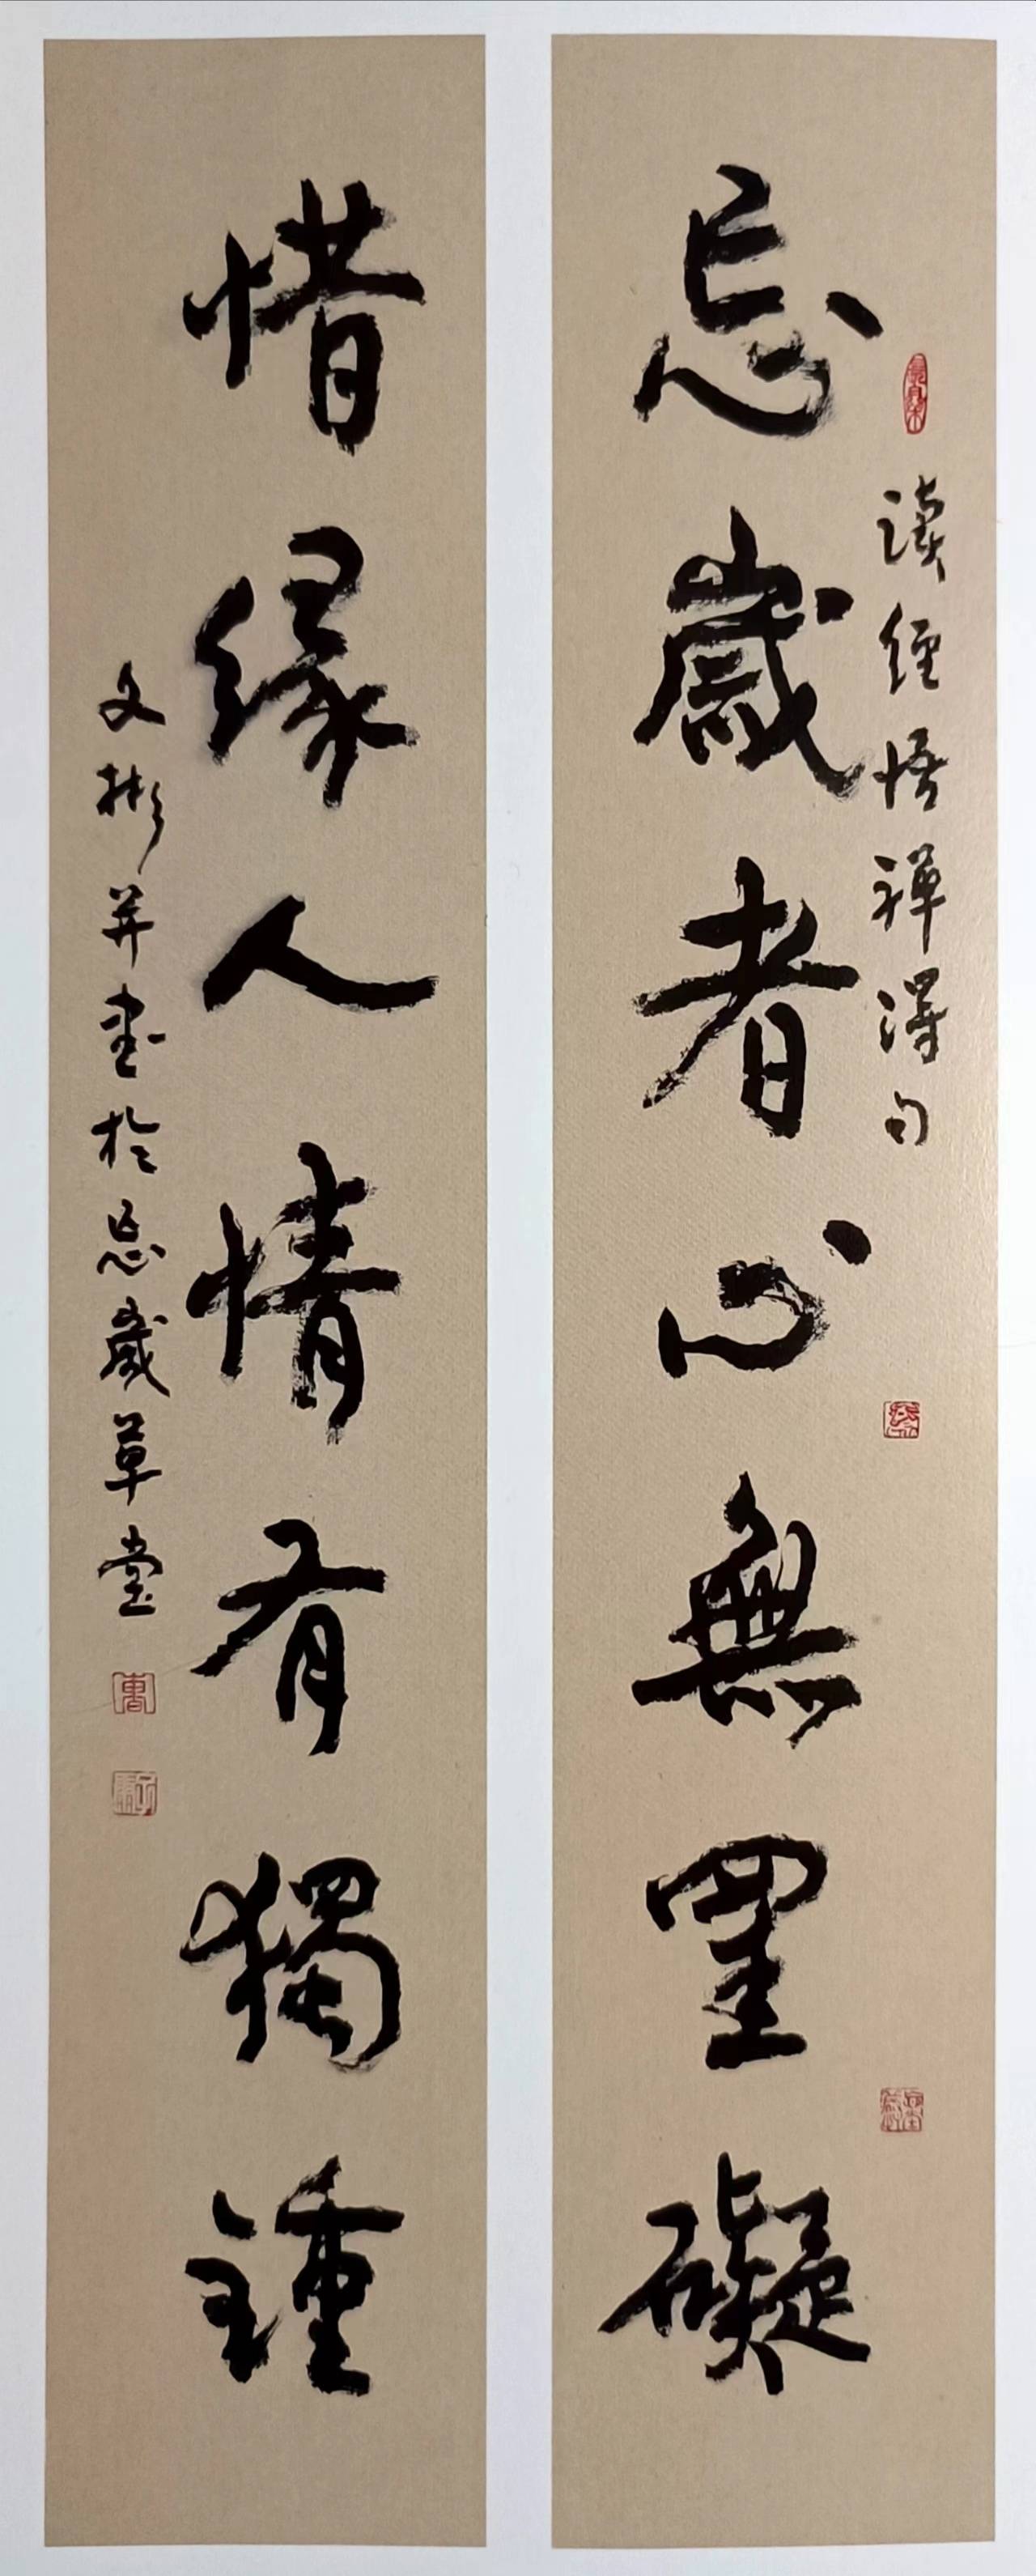 讀經悟禪得句
忘歲者心無罣礙
惜緣人情有獨鍾
文彬并書於忘歲草堂